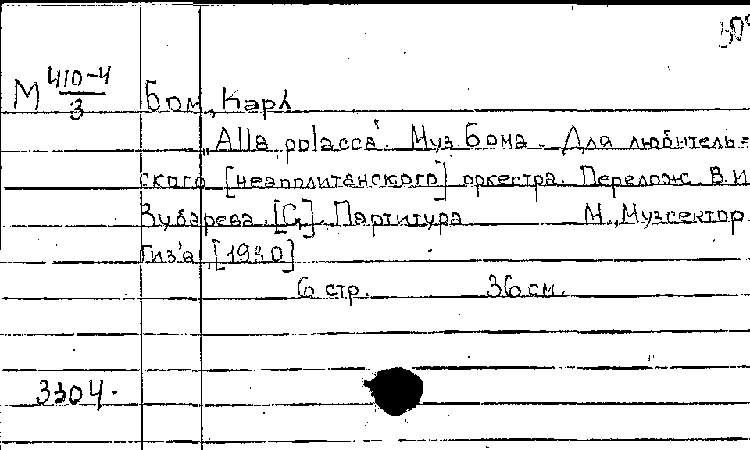 М 410-4/3 Бом, Карл
„Alla polacca". Муз. Бома. Для любитель-
ского [неаполитанского] оркестра. Перелож. В. И.
Зубарева. [C,]. Партитура М., Музсектор
Гиз'а, [1930]
6 стр. 36 см.
3304.